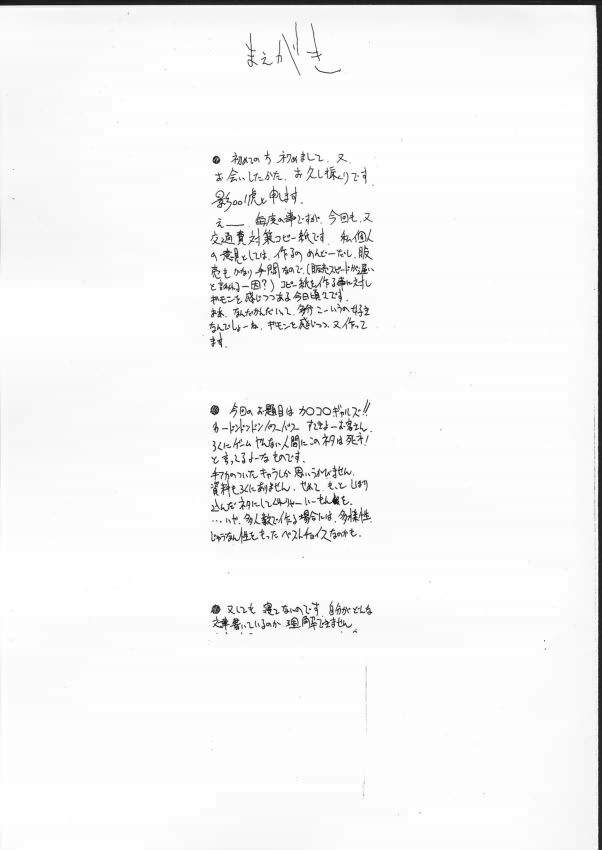 まえがき
● 初めての方 初めまして、又、
お会いしたかた、お久し振りです。
影001虎と申します。
えー 毎度の事ですが、今回も、又
交通費対策コピー紙です。私個人
の意見としては、作るの めんどーだし、販
売もかなり手間なので、(販売スピードが遅い
一因?) コピー紙を作る事に対し
ギモンを感じつつある今日頃です。
まあ、なんだかんだいって、多分こーいうの好き
なんでしょーね、ギモンを感じつつ、又作って
ます。
● 今回のお題目はカ〇コ〇ギャルズ!!
すてきよーお客さん。
ろくにゲームやんない人間にこのネタは死ネ!
と言ってるよーなものです。
チカのついたキャラしか思いうかびません。
資料もろくにありません。せめて、もっと しぼり
込んだネタにして いーもんを。
…いや、多人数で作る場合には、多様性、
じゅうなん性をもった ベストチョイスなのかも。
● 又しても 寝てないのです。自分がどんな
文章書いているのか 理解できません